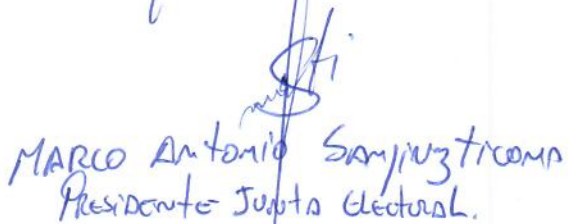 MARCO Antonio Sanjinez Ticona
PRESIDENTE JUNTA Electoral.